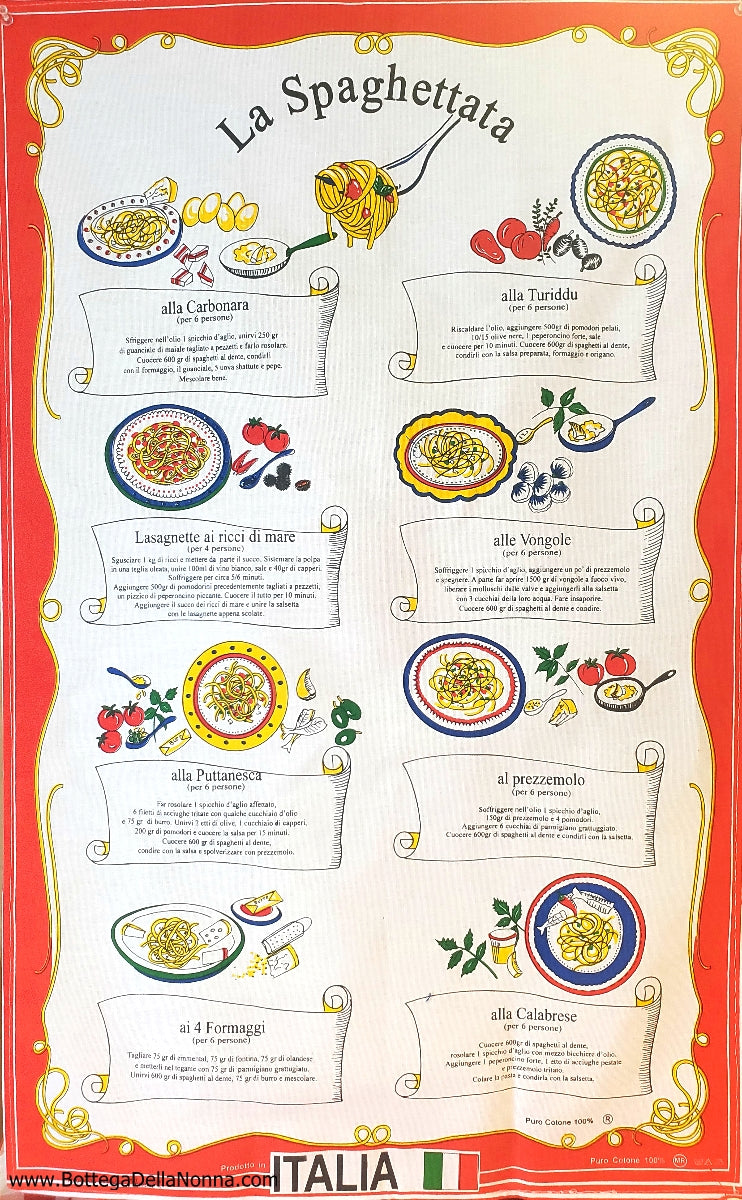 La Spaghettata
alla Carbonara
(per 6 persone)
Sfriggere nell'olio 1 spicchio d'aglio, unirvi 250 gr
di guanciale di maiale tagliato a pezzetti e farlo rosolare.
Cuocere 600 gr di spaghetti al dente, condirli
con il formaggio, il guanciale, 5 uova sbattute e pepe.
Mescolare bene.
alla Turiddu
(per 6 persone)
Riscaldare l'olio, aggiungere 500gr di pomodori pelati,
10/15 olive nere, 1 peperoncino forte, sale
e cuocere per 10 minuti. Cuocere 600gr di spaghetti al dente,
condirli con la salsa preparata, formaggio e origano.
Lasagnette ai ricci di mare
(per 4 persone)
Sgusciare 1 kg di ricci e mettere da parte il succo. Sistemare la polpa
in una teglia oleata, unire 100ml di vino bianco, sale e 40gr di capperi.
Soffriggere per circa 5/6 minuti.
Aggiungere 500gr di pomodorici precedentemente tagliati a pezzetti,
un pizzico di peperoncino piccante. Cuocere il tutto per 10 minuti.
Aggiungere il succo dei ricci di mare e unire la salsetta
con le lasagnette appena scolate.
alle Vongole
(per 6 persone)
Soffriggere 1 spicchio d'aglio, aggiungere un po' di prezzemolo
e spegnere. A parte far aprire 1500 gr di vongole a fuoco vivo,
liberare i molluschi dalle valve e aggiungerli alla salsetta
con 3 cucchiai della loro acqua. Fare insaporire.
Cuocere 600 gr di spaghetti al dente e condire.
alla Puttanesca
(per 6 persone)
Far rosolare 1 spicchio d'aglio affettato,
6 filetti di acciughe tritate con qualche cucchiaio d'olio
e 75 gr di burro. Unirvi 2 etti di olive, 1 cucchiaio di capperi,
200 gr di pomodori e cuocere la salsa per 15 minuti.
Cuocere 600 gr di spaghetti al dente,
condire con la salsa e spolverizzare con prezzemolo.
al prezzemolo
(per 6 persone)
Soffriggere nell'olio 1 spicchio d'aglio,
150gr di prezzemolo e 4 pomodori.
Aggiungere 6 cucchiai di parmigiano grattuggiato.
Cuocere 600gr di spaghetti al dente e condirli con la salsetta.
ai 4 Formaggi
(per 6 persone)
Tagliare 75 gr di emmental, 75 gr di fontina, 75 gr di olandese
e metterli nel tegame con 75 gr di parmigiano grattugiato.
Unirvi 600 gr di spaghetti al dente, 75 gr di burro e mescolare.
alla Calabrese
(per 6 persone)
Cuocere 600gr di spaghetti al dente,
rosolare 1 spicchio d'aglio con mezzo bicchiere d'olio.
Aggiungere 1 peperoncino forte, 1 etto di acciughe pestate
e prezzemolo tritato.
Colare la pasta e condirla con la salsetta.
Puro Cotone 100% ®
Prodotto in ITALIA
Puro Cotone 100% MR
www.BottegaDellaNonna.com